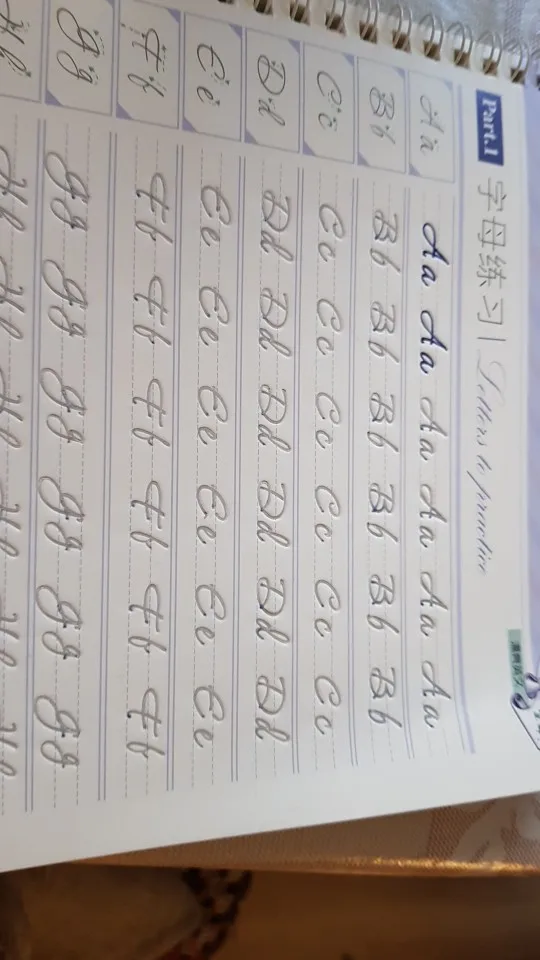 Part.1 字母练习 | Letters to practice
Aa Aa Aa Aa Aa Aa Aa
Bb Bb Bb Bb Bb Bb Bb
Cc Cc Cc Cc Cc Cc Cc
Dd Dd Dd Dd Dd Dd Dd
Ee Ee Ee Ee Ee Ee Ee
Ff Ff Ff Ff Ff Ff Ff
Gg Gg Gg Gg Gg Gg Gg
Hh Hh Hh Hh Hh Hh Hh